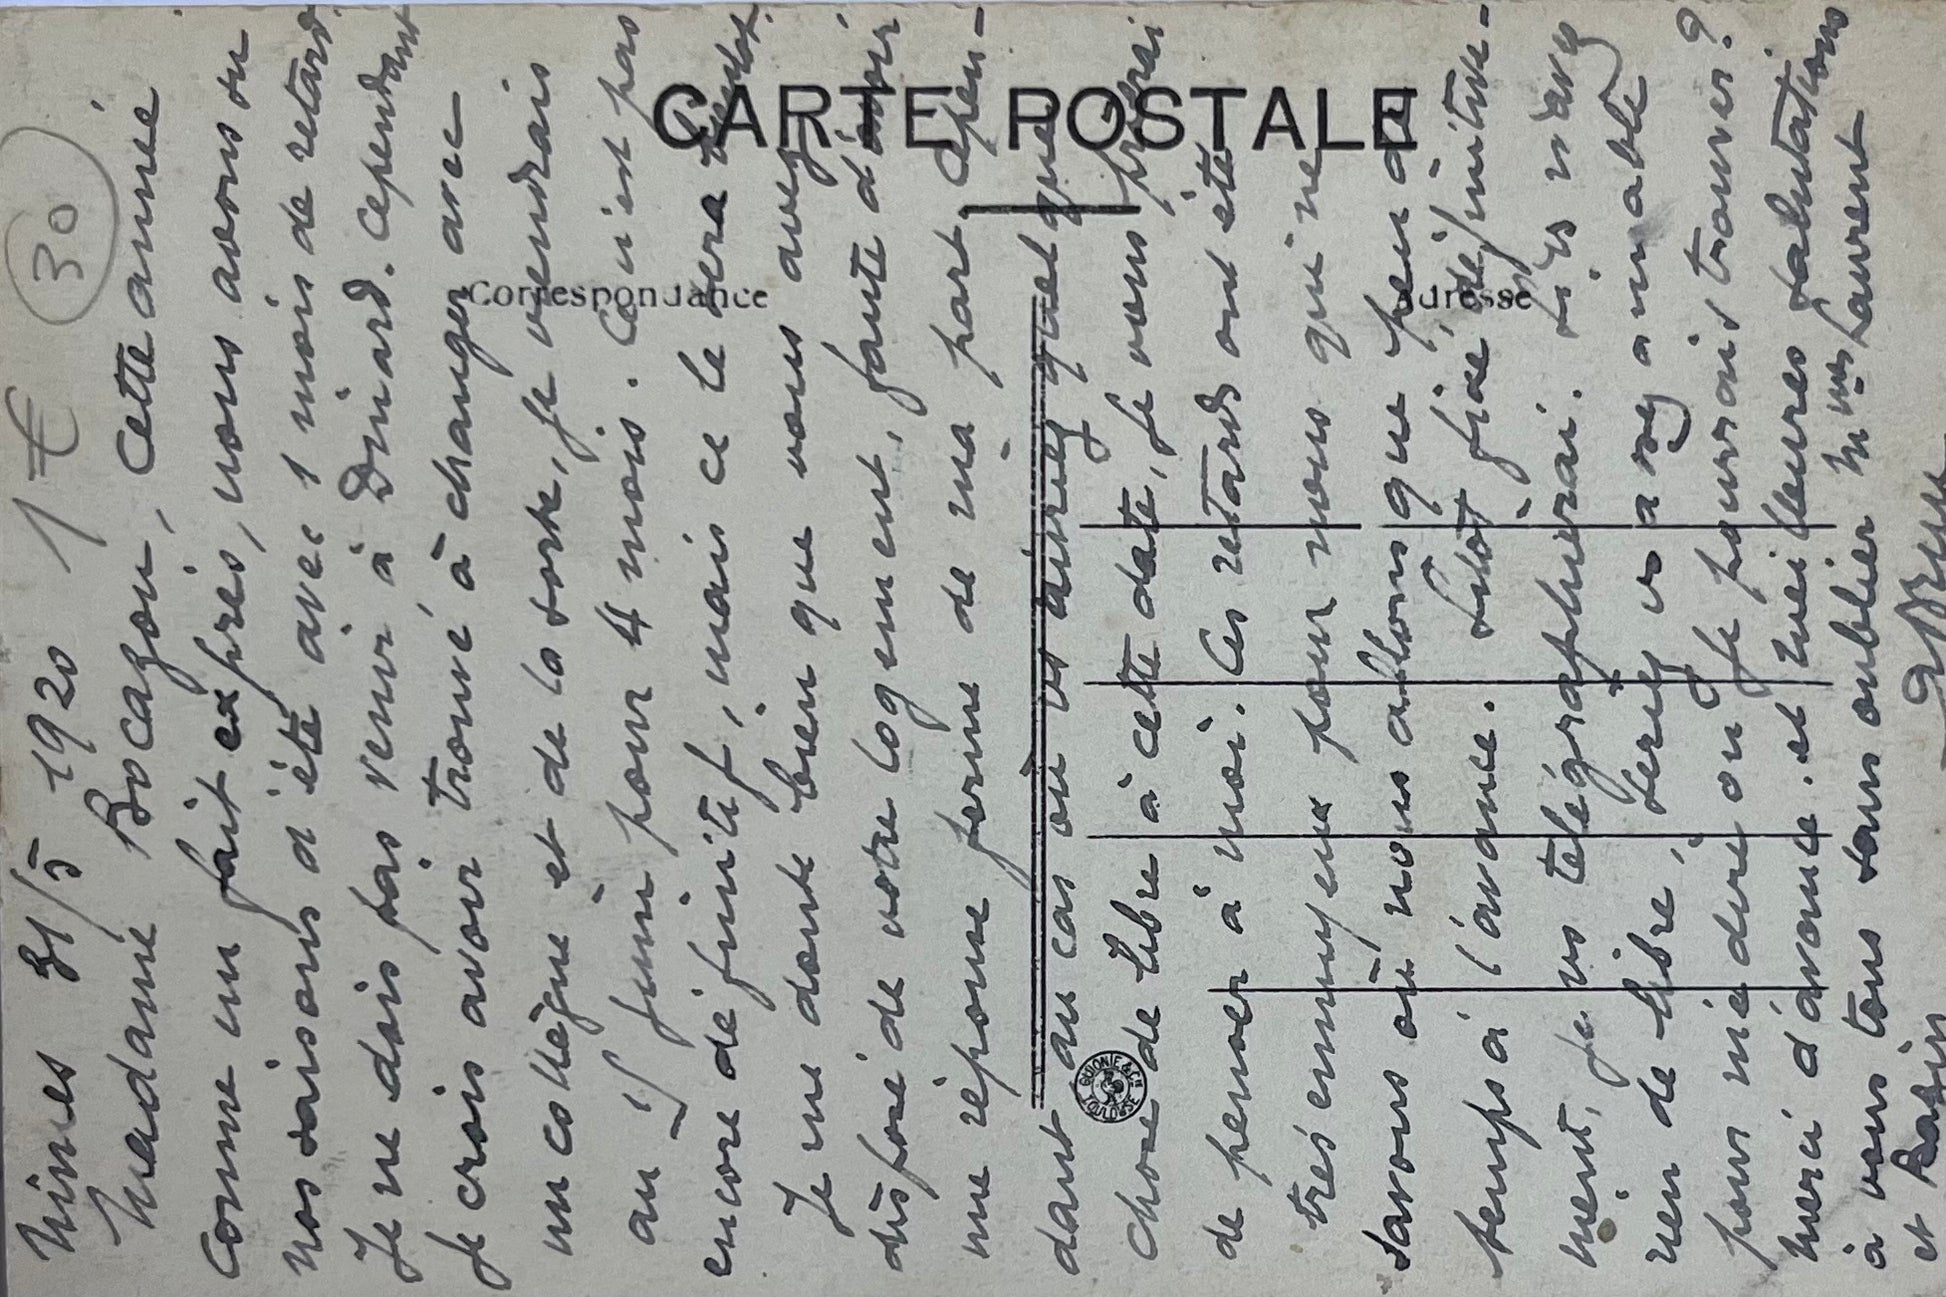 CARTE POSTALE
Correspondance
Adresse
GUIONIE & Cie TOULOUSE
30
1 €
Nimes 31/5 1920
Madame Bocazou, Cette année
comme un fait exprès, nous avons eu
nos saisons d'été avec 1 mois de retard
Je ne dois pas venir à Dinard. Cependant
Je crois avoir trouvé à changer avec
un collègue et de la sorte, Je viendrais
au 15 Juin pour 4 mois. Ce n'est pas
encore définitif, mais ce le sera bientôt.
Je me doute bien que vous avez
disposé de votre logement, faute d'avoir
une réponse ferme de ma part Cepen-
dant au cas où vs auriez quelque
chose de libre à cette date, Je vous prierai
de penser à moi. Ces retards ont été
très ennuyeux pour nous qui ne
savons où nous allons que peu de
temps à l'avance. Sitôt fixé définitive-
ment, je vs télégraphierai. Si vs n'avez
rien de libre, seriez vs assez aimable
pour me dire où Je pourrais trouver?
Merci d'avance. et meilleures salutations
à vous tous sans oublier Mmes Laurent
et